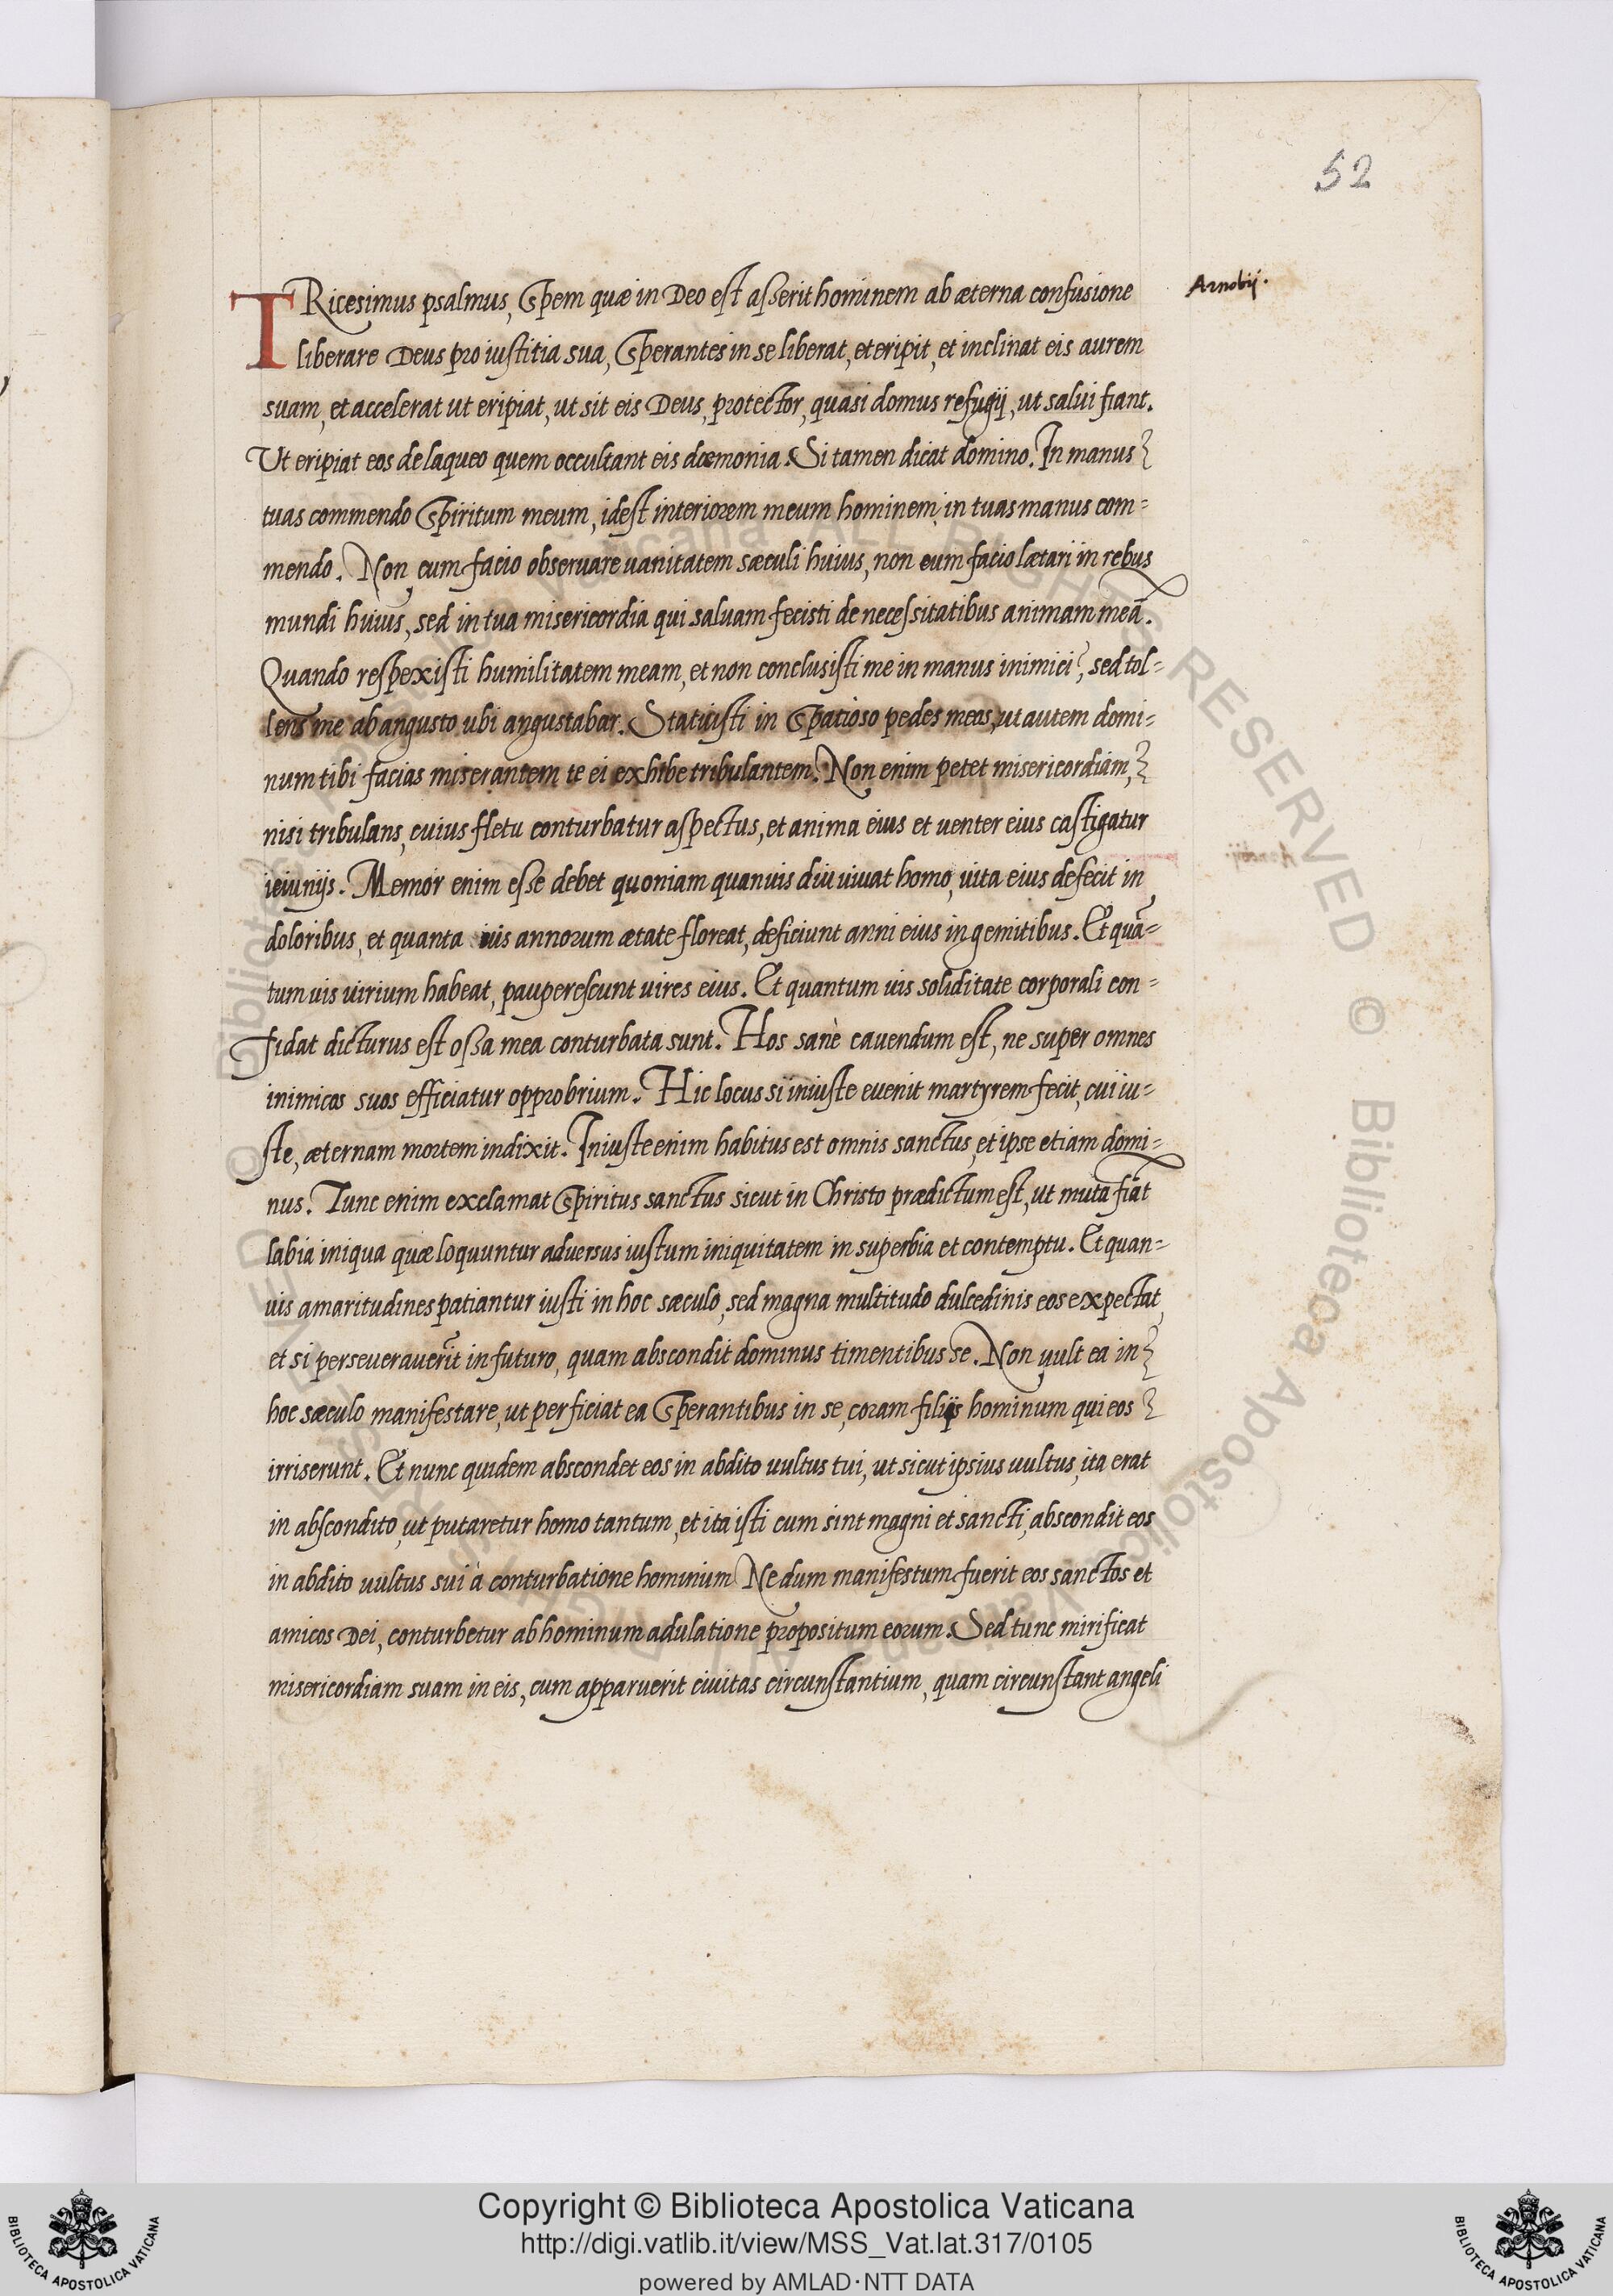 52
Arnobij.
TRicesimus psalmus, Spem quæ in Deo est asserit hominem ab æterna confusione
liberare Deus pro iustitia sua, Sperantes in se liberat, et eripit, et inclinat eis aurem
suam, et accelerat ut eripiat, ut sit eis Deus, protector, quasi domus refugij, ut salui fiant.
Ut eripiat eos de laqueo quem occultant eis dœmonia. Si tamen dicat domino. In manus
tuas commendo Spiritum meum, idest interiorem meum hominem, in tuas manus com=
mendo. Non eum facio obseruare uanitatem sæculi huius, non eum facio lætari in rebus
mundi huius, sed in tua misericordia qui saluam fecisti de necessitatibus animam meā.
Quando respexisti humilitatem meam, et non conclusisti me in manus inimici, sed tol=
lens me ab angusto ubi angustabar. Statuisti in Spatioso pedes meos, ut autem domi=
num tibi facias miserantem te ei exhibe tribulantem. Non enim petet misericordiam,
nisi tribulans, cuius fletu conturbatur aspectus, et anima eius et uenter eius castigatur
ieiunijs. Memor enim esse debet quoniam quanuis diu uiuat homo, uita eius defecit in
doloribus, et quanta uis annorum ætate floreat, deficiunt anni eius in gemitibus. Et quā=
tum uis uirium habeat, pauperescunt uires eius. Et quantum uis soliditate corporali con=
fidat dicturus est ossa mea conturbata sunt. Hos sanè cauendum est, ne super omnes
inimicos suos efficiatur opprobrium. Hic locus si iniuste euenit martyrem fecit, cui iu=
ste, æternam mortem indixit. Iniuste enim habitus est omnis sanctus, et ipse etiam domi=
nus. Tunc enim exclamat Spiritus sanctus sicut in Christo prædictum est, ut muta fiāt
labia iniqua quæ loquuntur aduersus iustum iniquitatem in superbia et contemptu. Et quan=
uis amaritudines patiantur iusti in hoc sæculo, sed magna multitudo dulcedinis eos expectat,
et si perseuerauer̄it in futuro, quam abscondit dominus timentibus se. Non uult ea in
hoc sæculo manifestare, ut perficiat ea Sperantibus in se, coram filijs hominum qui eos
irriserunt. Et nunc quidem abscondet eos in abdito uultus tui, ut sicut ipsius uultus, ita erat
in abscondito, ut putaretur homo tantum, et ita isti cum sint magni et sancti, abscondit eos
in abdito uultus sui à conturbatione hominum Ne dum manifestum fuerit eos sanctos et
amicos Dei, conturbetur ab hominum adulatione propositum eorum. Sed tunc mirificat
misericordiam suam in eis, cum apparuerit ciuitas circunstantium, quam circunstant angeli
Copyright © Biblioteca Apostolica Vaticana
http://digi.vatlib.it/view/MSS_Vat.lat.317/0105
powered by AMLAD·NTT DATA
BIBLIOTECA APOSTOLICA VATICANA
BIBLIOTECA APOSTOLICA VATICANA